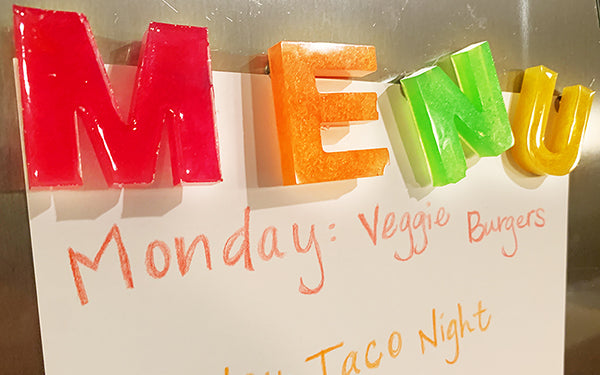 MENU
Monday: Veggie Burgers
Taco Night